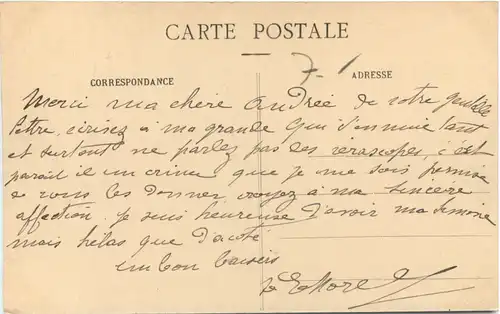 CARTE POSTALE
7-1
CORRESPONDANCE
ADRESSE
Merci ma chère Andrée de votre gentille
lettre, écrivez à ma grande qui s'ennuie tant
et surtout ne parlez pas des verascopes, c'est
parait il un crime que je me sois permise
de vous les donner, croyez à ma sincère
affection. Je suis heureuse d'avoir ma Simone
mais hélas que d'à coté
un bon baisers